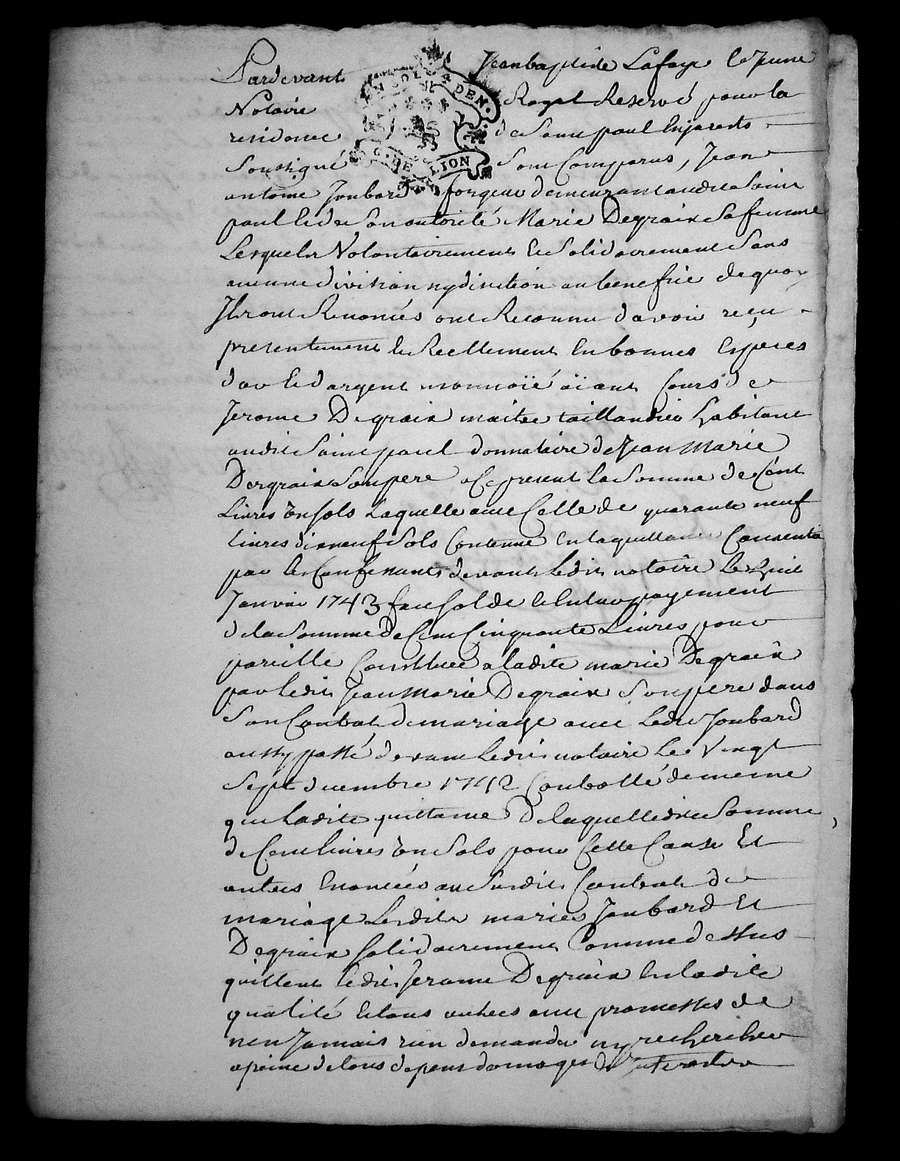 Pardevant Jeanbaptiste Lafaye le Jeune
Notaire Royal Reservé pour la
residence de Saint paul Enjarests
Soussigné Sont Comparus, Jean
antoine Joubard forgeur demeurant audit Saint
paul Et de Son autorité Marie Degraix Sa femme
Lesquels Volontairement Et Solidairement Sans
aucune division ny distition au benefice de quoy
Ils ont Renoncés ont Reconnu d'avoir reçu
presentement Et Reellement En bonnes Especes
d'or Et d'argent monnoïé aïant Cours de
Jerome Degraix maitre taillandier habitant
audit Saint paul donnataire de Jean Marie
Degraix Son pere a Ce present la Somme de Cent
Livres un Sols Laquelle avec Celle de quarante neuf
livres dix neuf Sols Contenue en la quittance Consentie
par les Confessants devant Ledit notaire Le huit
Janvier 1743 fait Solde Et Entier payement
de la Somme de Cent Cinquante Livres pour
pareille Constituée a ladite marie Degraix
par ledit Jean Marie Degraix Son pere dans
Son Contrat de mariage avec Ledit Joubard
aussy passé devant Ledit notaire Le Vingt
Sept decembre 1742 Controllé de meme
que Ladite quittance De laquelle dite Somme
de Cent livres un Sols pour Cette Cause Et
autres Enoncées au Susdit Contrat de
mariage Lesdits mariés Joubard Et
Degraix Solidairement Comme dessus
quittent ledit Jerome Degraix En ladite
qualité Et tous autres avec promesses de
n'en Jamais rien demander ny rechercher
a peine de tous depens domages Et interests
EN SOL DEN.
G. DE LION